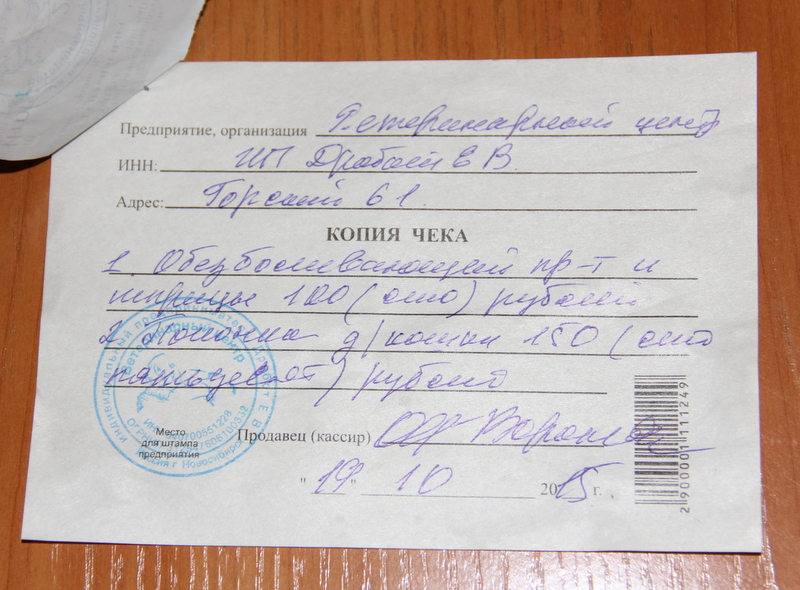 Предприятие, организация Ветеринарный центр
ИНН: ИП Дробот Е В.
Адрес: Горский 61.
КОПИЯ ЧЕКА
1. Обезболивающий пр-т и
шприцы 100 (сто) рублей
2. Попонка д/кошки 150 (сто
пятьдесят) рублей
Место
для штампа
предприятия
Продавец (кассир)
" 19 " 10 2015 г.
2 900001 111249